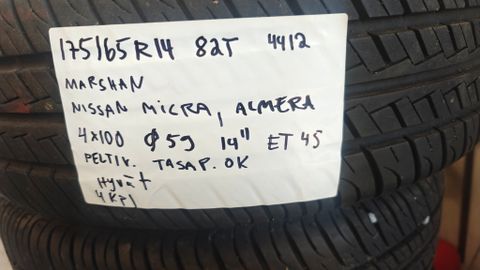 175/65R14 82T 4412
MARSHAN
NISSAN MICRA, ALMERA
4x100 ϕ59 14" ET 45
PELTIV. TASAP. OK
Hyvät
4 KPL